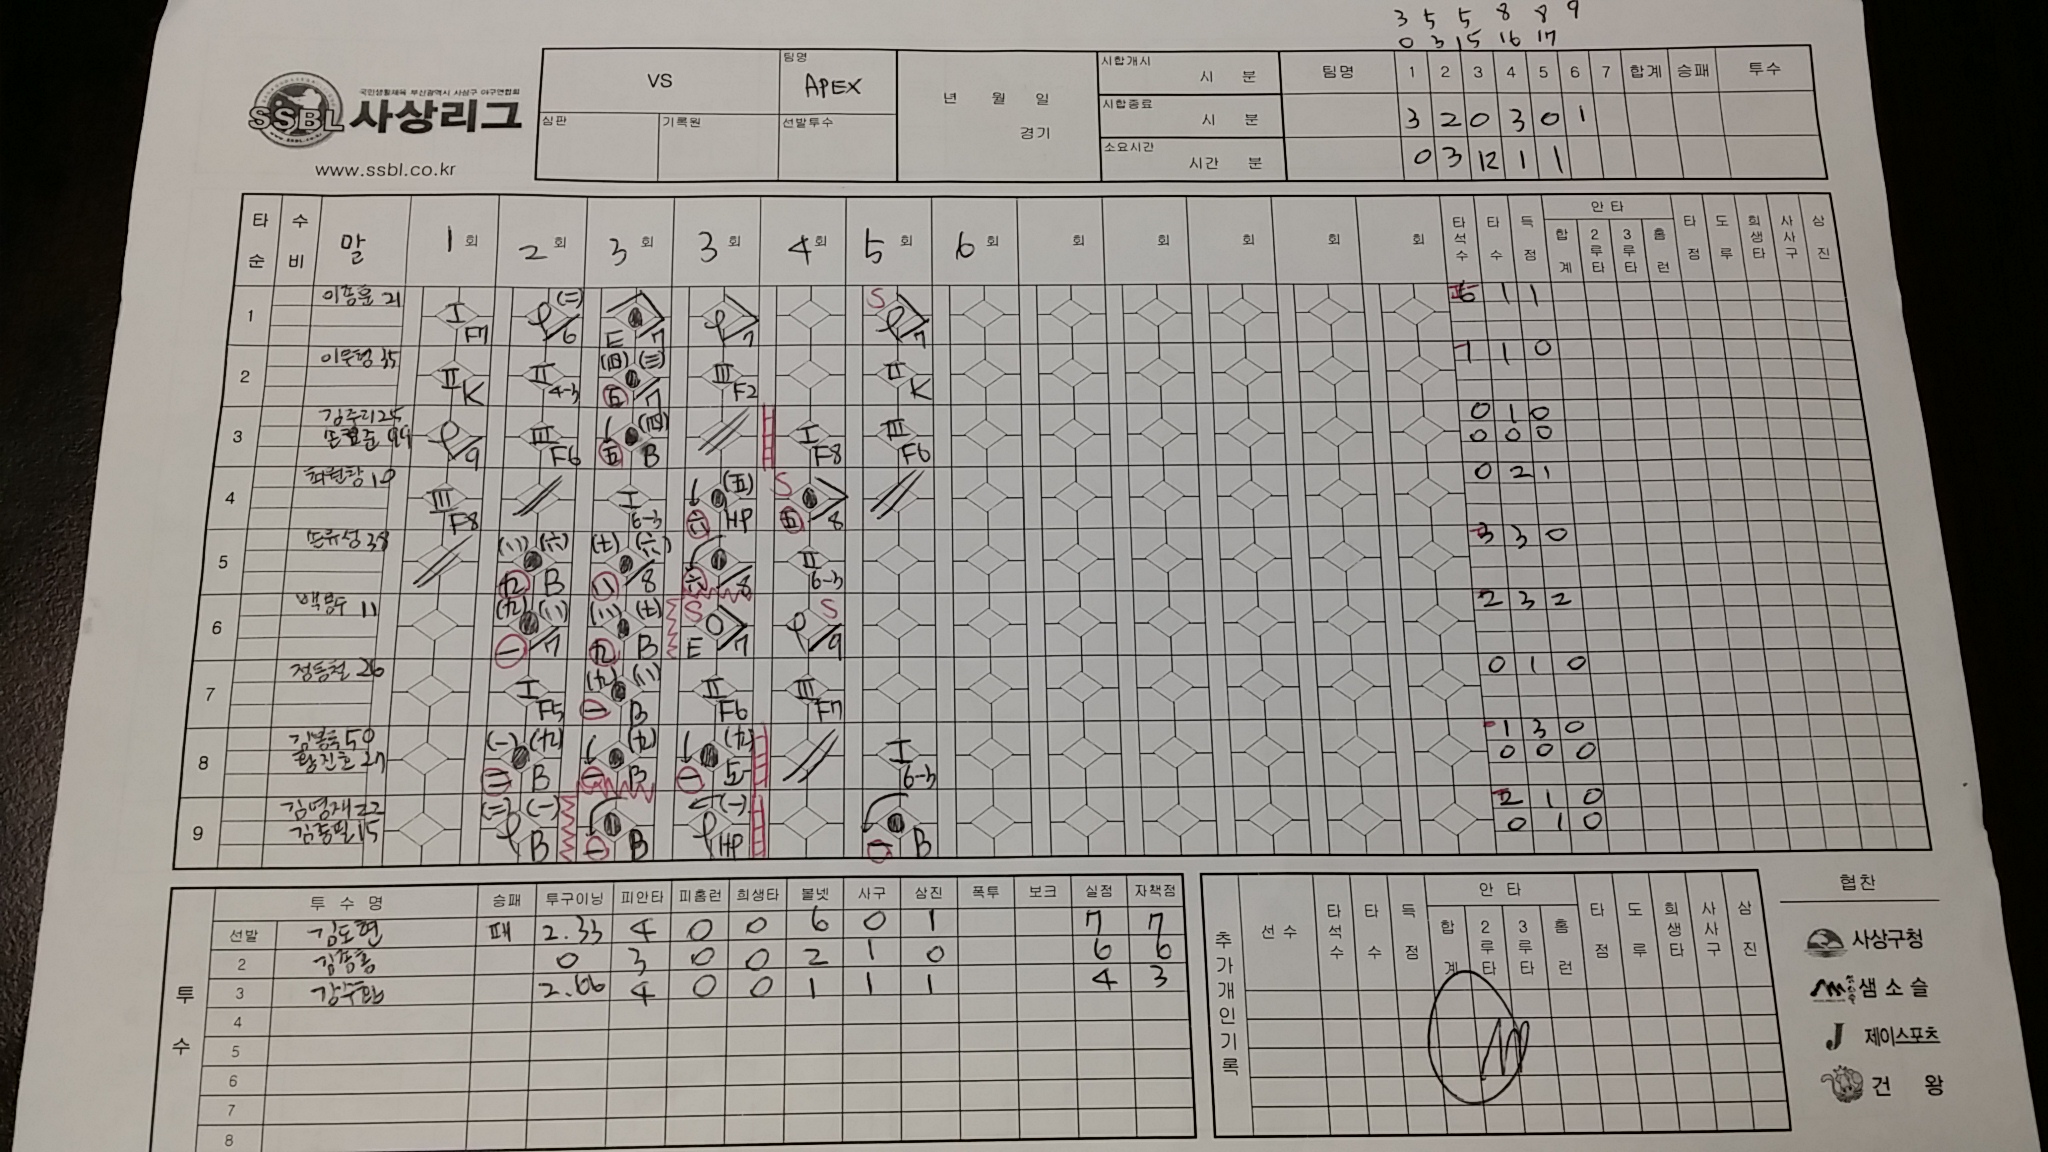 3 5 5 8 8 9
0 3 15 16 17
국민생활체육 부산광역시 사상구 야구연합회
SSBL 사상리그
www.ssbl.co.kr
VS
팀명
APEX
심판 기록원 선발투수
년 월 일
경기
시합개시 시 분
시합종료 시 분
소요시간 시간 분
팀명 1 2 3 4 5 6 7 합계 승패 투수
3 2 0 3 0 1
0 3 12 1 1
타순 수비 말 1회 2회 3회 3회 4회 5회 6회 회 회 회 회 회 타석수 타수 득점 안타 합계 2루타 3루타 홈런 타점 도루 희생타 사사구 삼진
1 이종훈 21 I F7 (二) 6 E 7 7 S 7 6 1 1
2 35 II K II 4-3 (四) (三) 五 7 III F2 II K 1 1 0
3 25 99 9 III F6 (四) 五 B I F8 III F6 0 1 0
0 0 0
4 10 III F8 I 6-3 (五) 六 HP S 五 8 0 2 1
5 38 (八) (六) 九 B (七) (六) 八 8 六 8 II 6-3 3 3 0
6 11 (九) (八) 一 7 (八) (七) 九 B S E 7 S 9 2 3 2
7 정동철 26 I F5 (九) (八) 一 B II F6 III F7 0 1 0
8 50 27 (一) (九) 二 B (九) 一 B (九) 一 5- I 6-3 1 3 0
0 0 0
9 김명재 22 15 (二) (一) B 一 B (一) HP 一 B 2 1 0
0 1 0
투수 투수명 승패 투구이닝 피안타 피홈런 희생타 볼넷 사구 삼진 폭투 보크 실점 자책점
선발 김도현 패 2.33 4 0 0 6 0 1 7 7
2 0 3 0 0 2 1 0 6 6
3 2.66 4 0 0 1 1 1 4 3
4
5
6
7
8
추가개인기록 선수 타석수 타수 득점 안타 합계 2루타 3루타 홈런 타점 도루 희생타 사사구 삼진
협찬
사상구청
샘소슬
J 제이스포츠
건왕